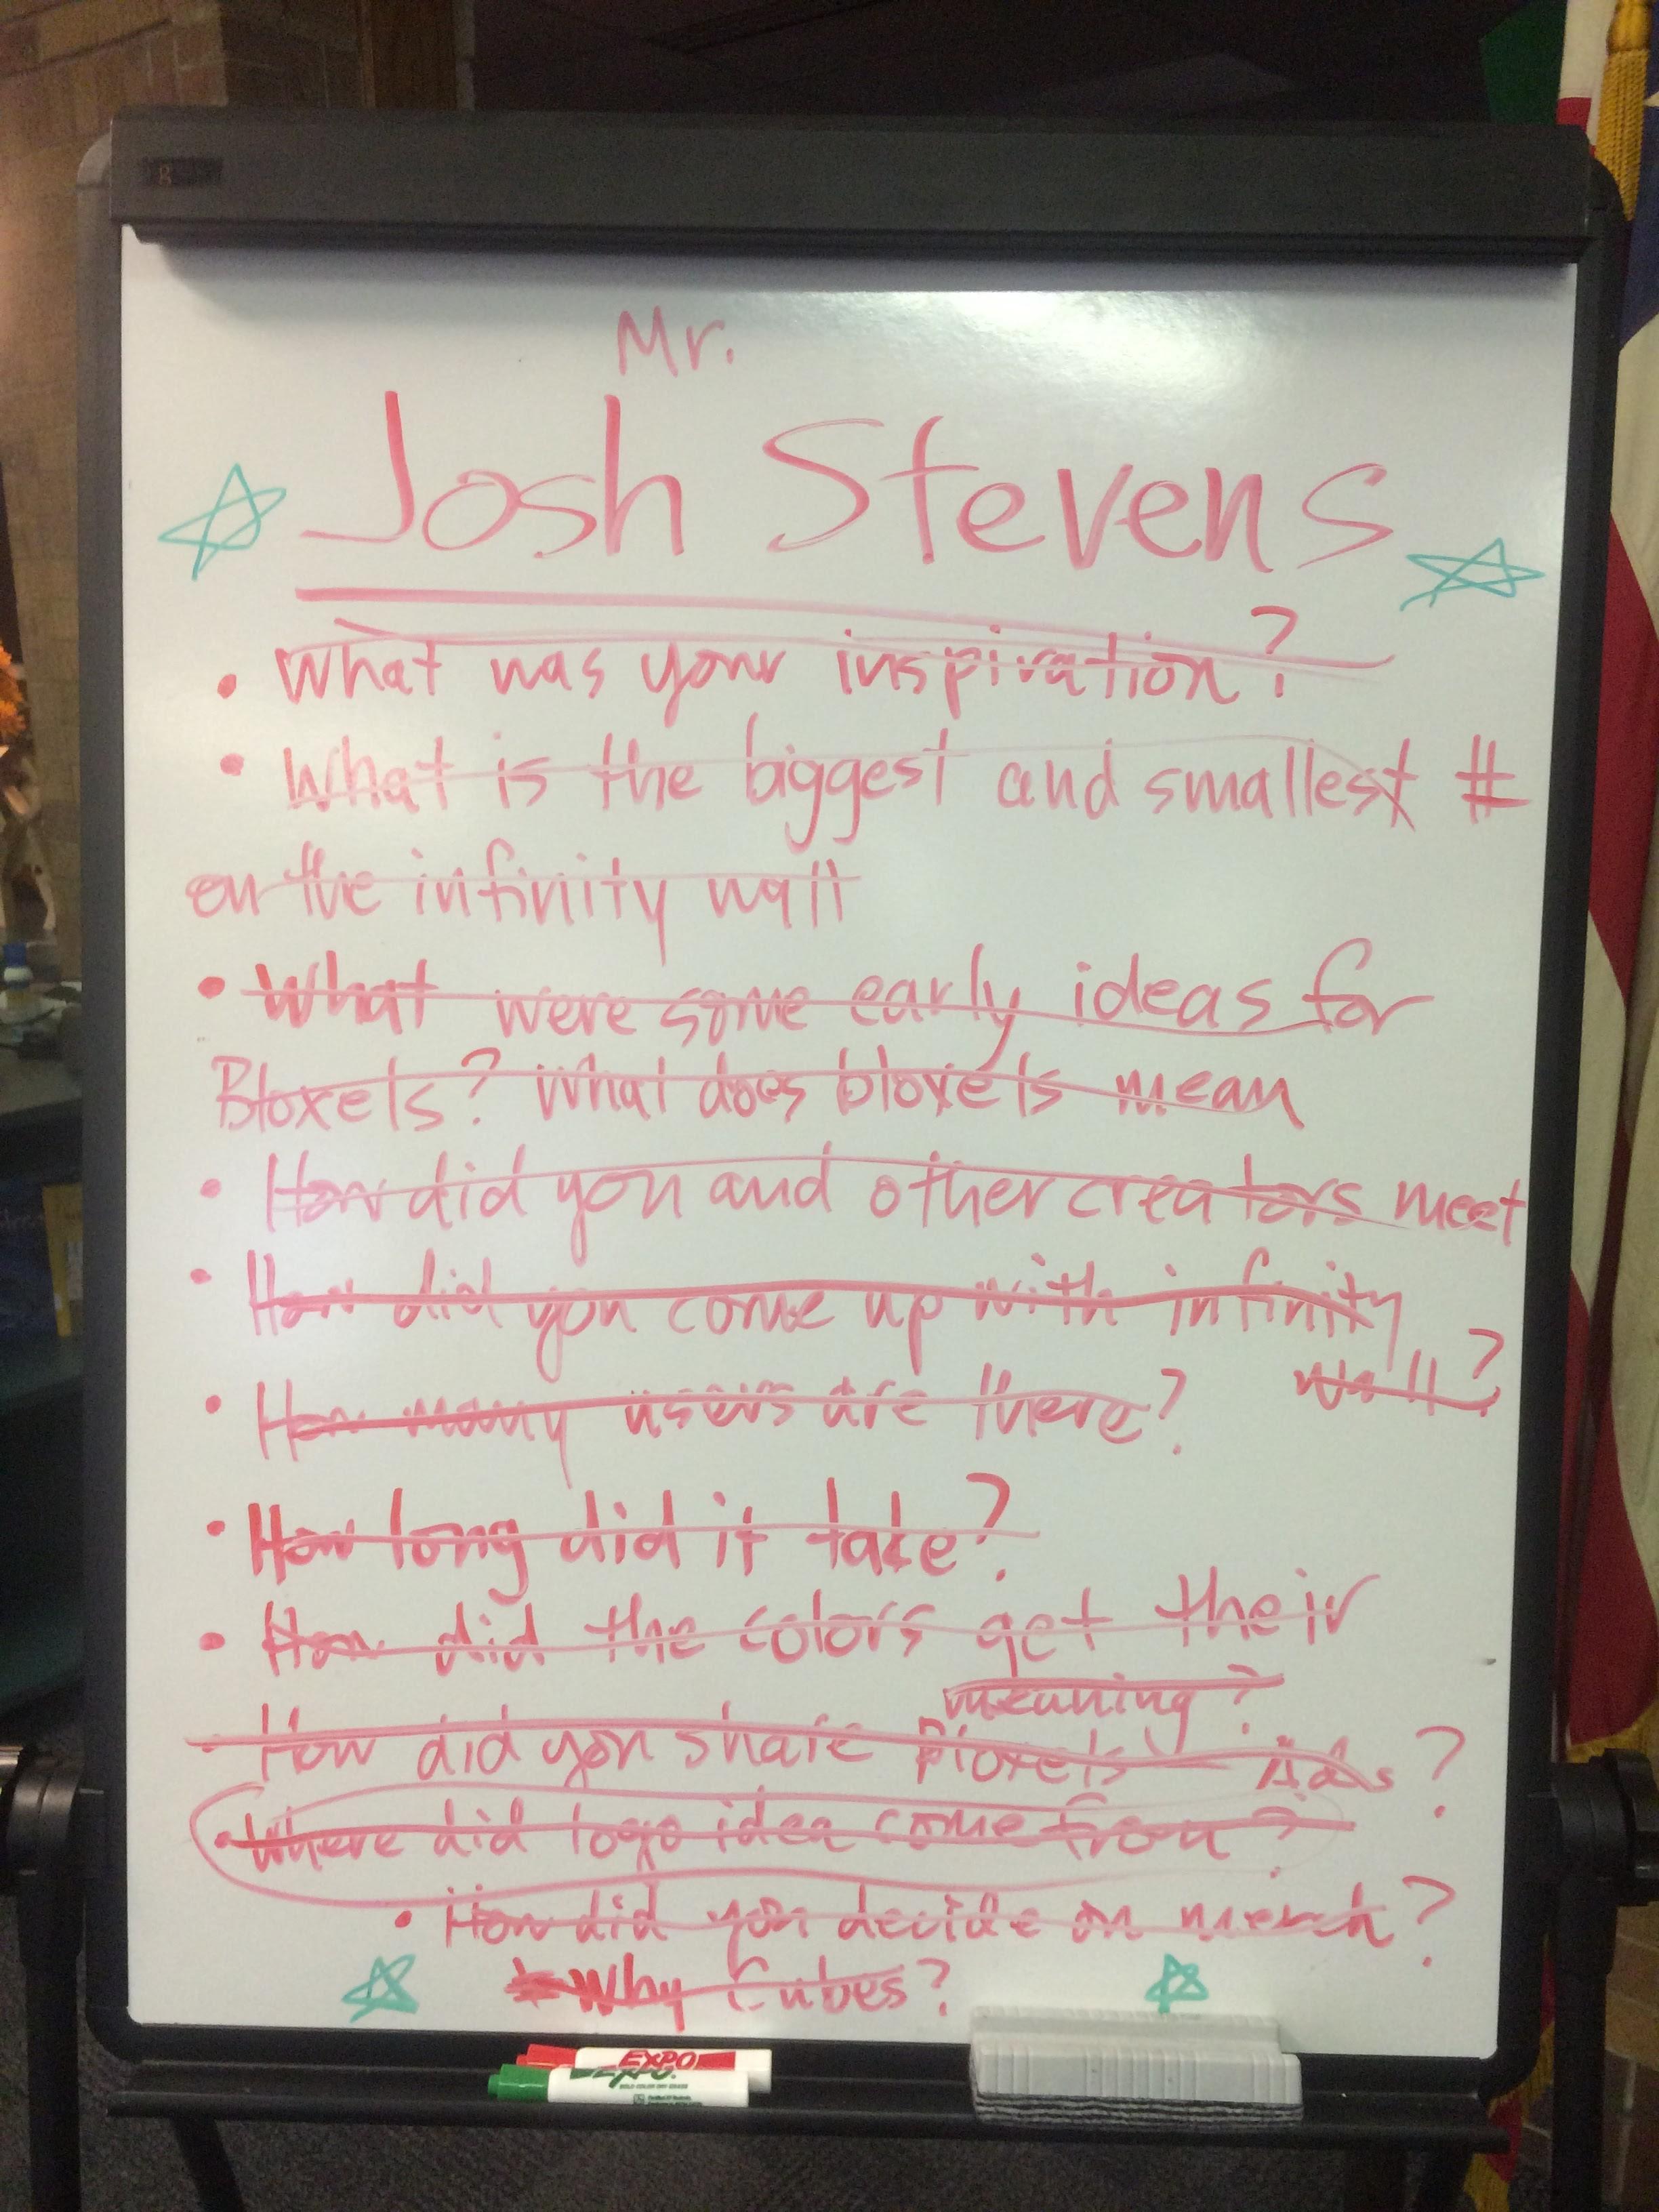 Mr.
Josh Stevens
• What was your inspiration?
• What is the biggest and smallest #
on the infinity wall
• What were some early ideas for
Bloxels? What does bloxels mean
• How did you and other creators meet
• How did you come up with infinity
wall?
• How many users are there?
• How long did it take?
• How did the colors get their
meaning?
• How did you share Bloxels — Ads?
• Where did logo idea come from?
• How did you decide on merch?
• Why Cubes?
EXPO
EXPO